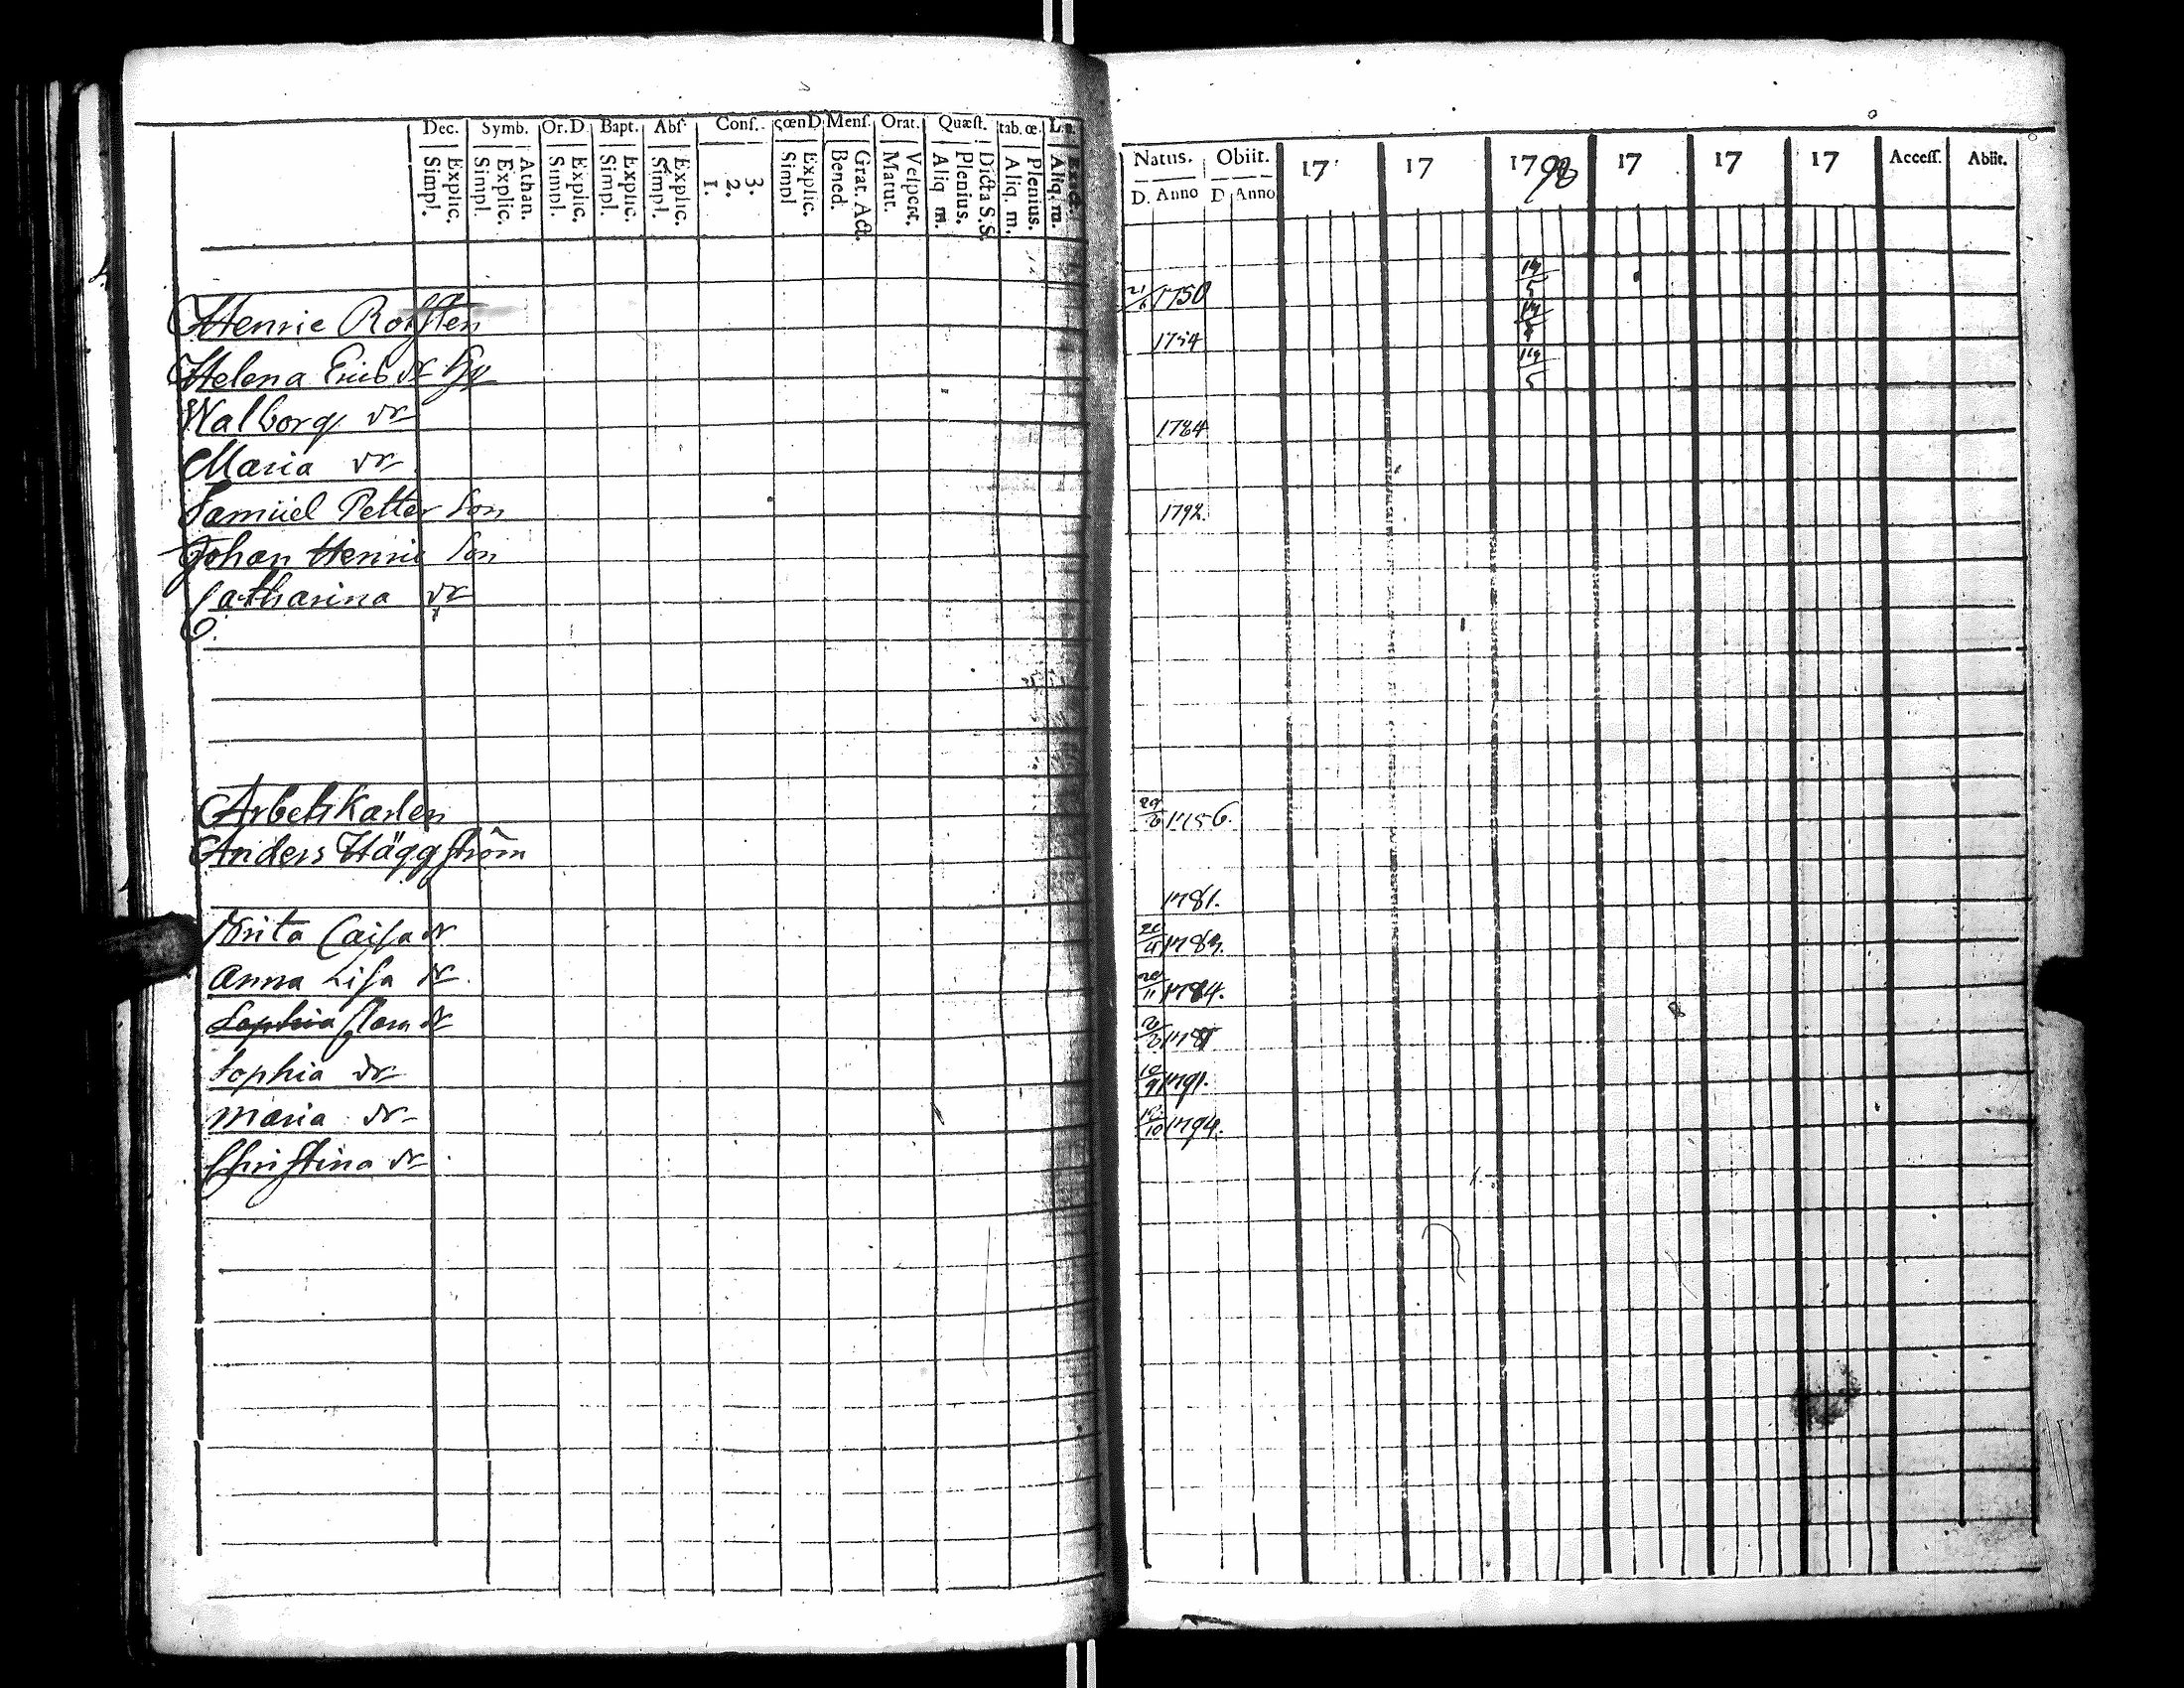 Dec. Symb. Or.D Bapt. Abſ. Conf. cœnD Menſ. Orat. Quæſt. tab.œ.
Simpl. Explic. Simpl. Explic. Athan. Simpl. Explic. Simpl. Explic. Simpl. Explic. 1. 2. 3. Simpl Explic. Bened. Grat. Act. Matut. Veſpert. Aliq. m. Plenius. Dicta S.S. Aliq. m. Plenius. Aliq. m. Exact.
Henric
Helena Erics dr
Walborg dr
Maria dr
Samuel Petter Son
Johan Henric Son
Catharina dr
Arbets Karlen
Anders Häggström
Brita Caisa dr
Anna Lisa dr
Sophia dr
Sophia dr
Maria dr
Christina dr
Natus. Obiit. 17 17 1798 17 17 17 Acceſſ. Abiit.
D. Anno D. Anno
21 1750 19/5
1754
19/5
1784
1792.
29/6 1756.
1781.
1783.
29/11 1784.
10/9 1791.
12/10 1794.